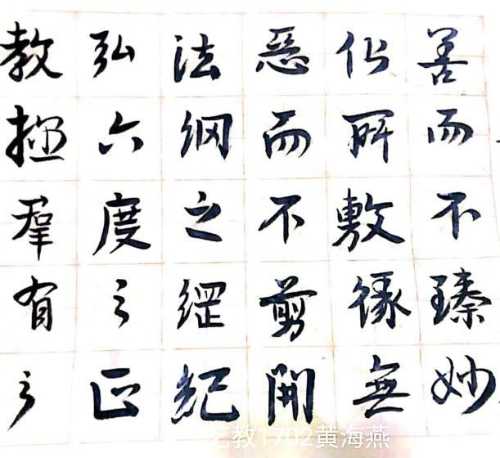 善而不臻妙
化所敷緣無
惡而不剪開
法網之綱紀
弘六度之正
教拯羣有之
教1702黄海燕